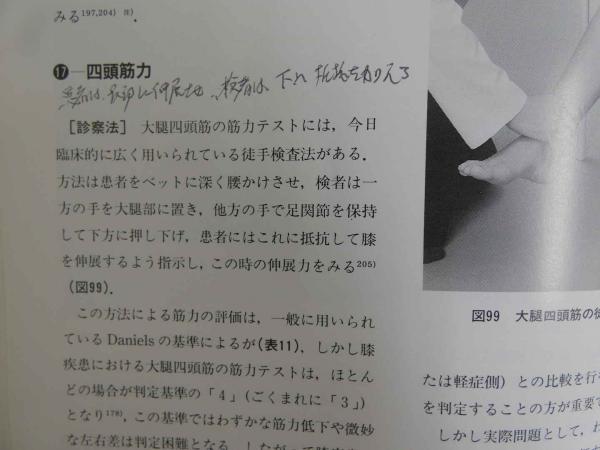 みる197,204) 注).
⓱—四頭筋力
患者は 検者は 下に 抵抗を加える
［診察法］ 大腿四頭筋の筋力テストには，今日
臨床的に広く用いられている徒手検査法がある．
方法は患者をベットに深く腰かけさせ，検者は一
方の手を大腿部に置き，他方の手で足関節を保持
して下方に押し下げ，患者にはこれに抵抗して膝
を伸展するよう指示し，この時の伸展力をみる205)
（図99）．
この方法による筋力の評価は，一般に用いられ
ているDanielsの基準によるが（表11），しかし膝
疾患における大腿四頭筋の筋力テストは，ほとん
どの場合が判定基準の「4」（ごくまれに「3」）
となり178)，この基準ではわずかな筋力低下や微妙
な左右差は判定困難となる．したがって
図99 大腿四頭筋の
たは軽症側）との比較を行
を判定することの方が重要
しかし実際問題として，